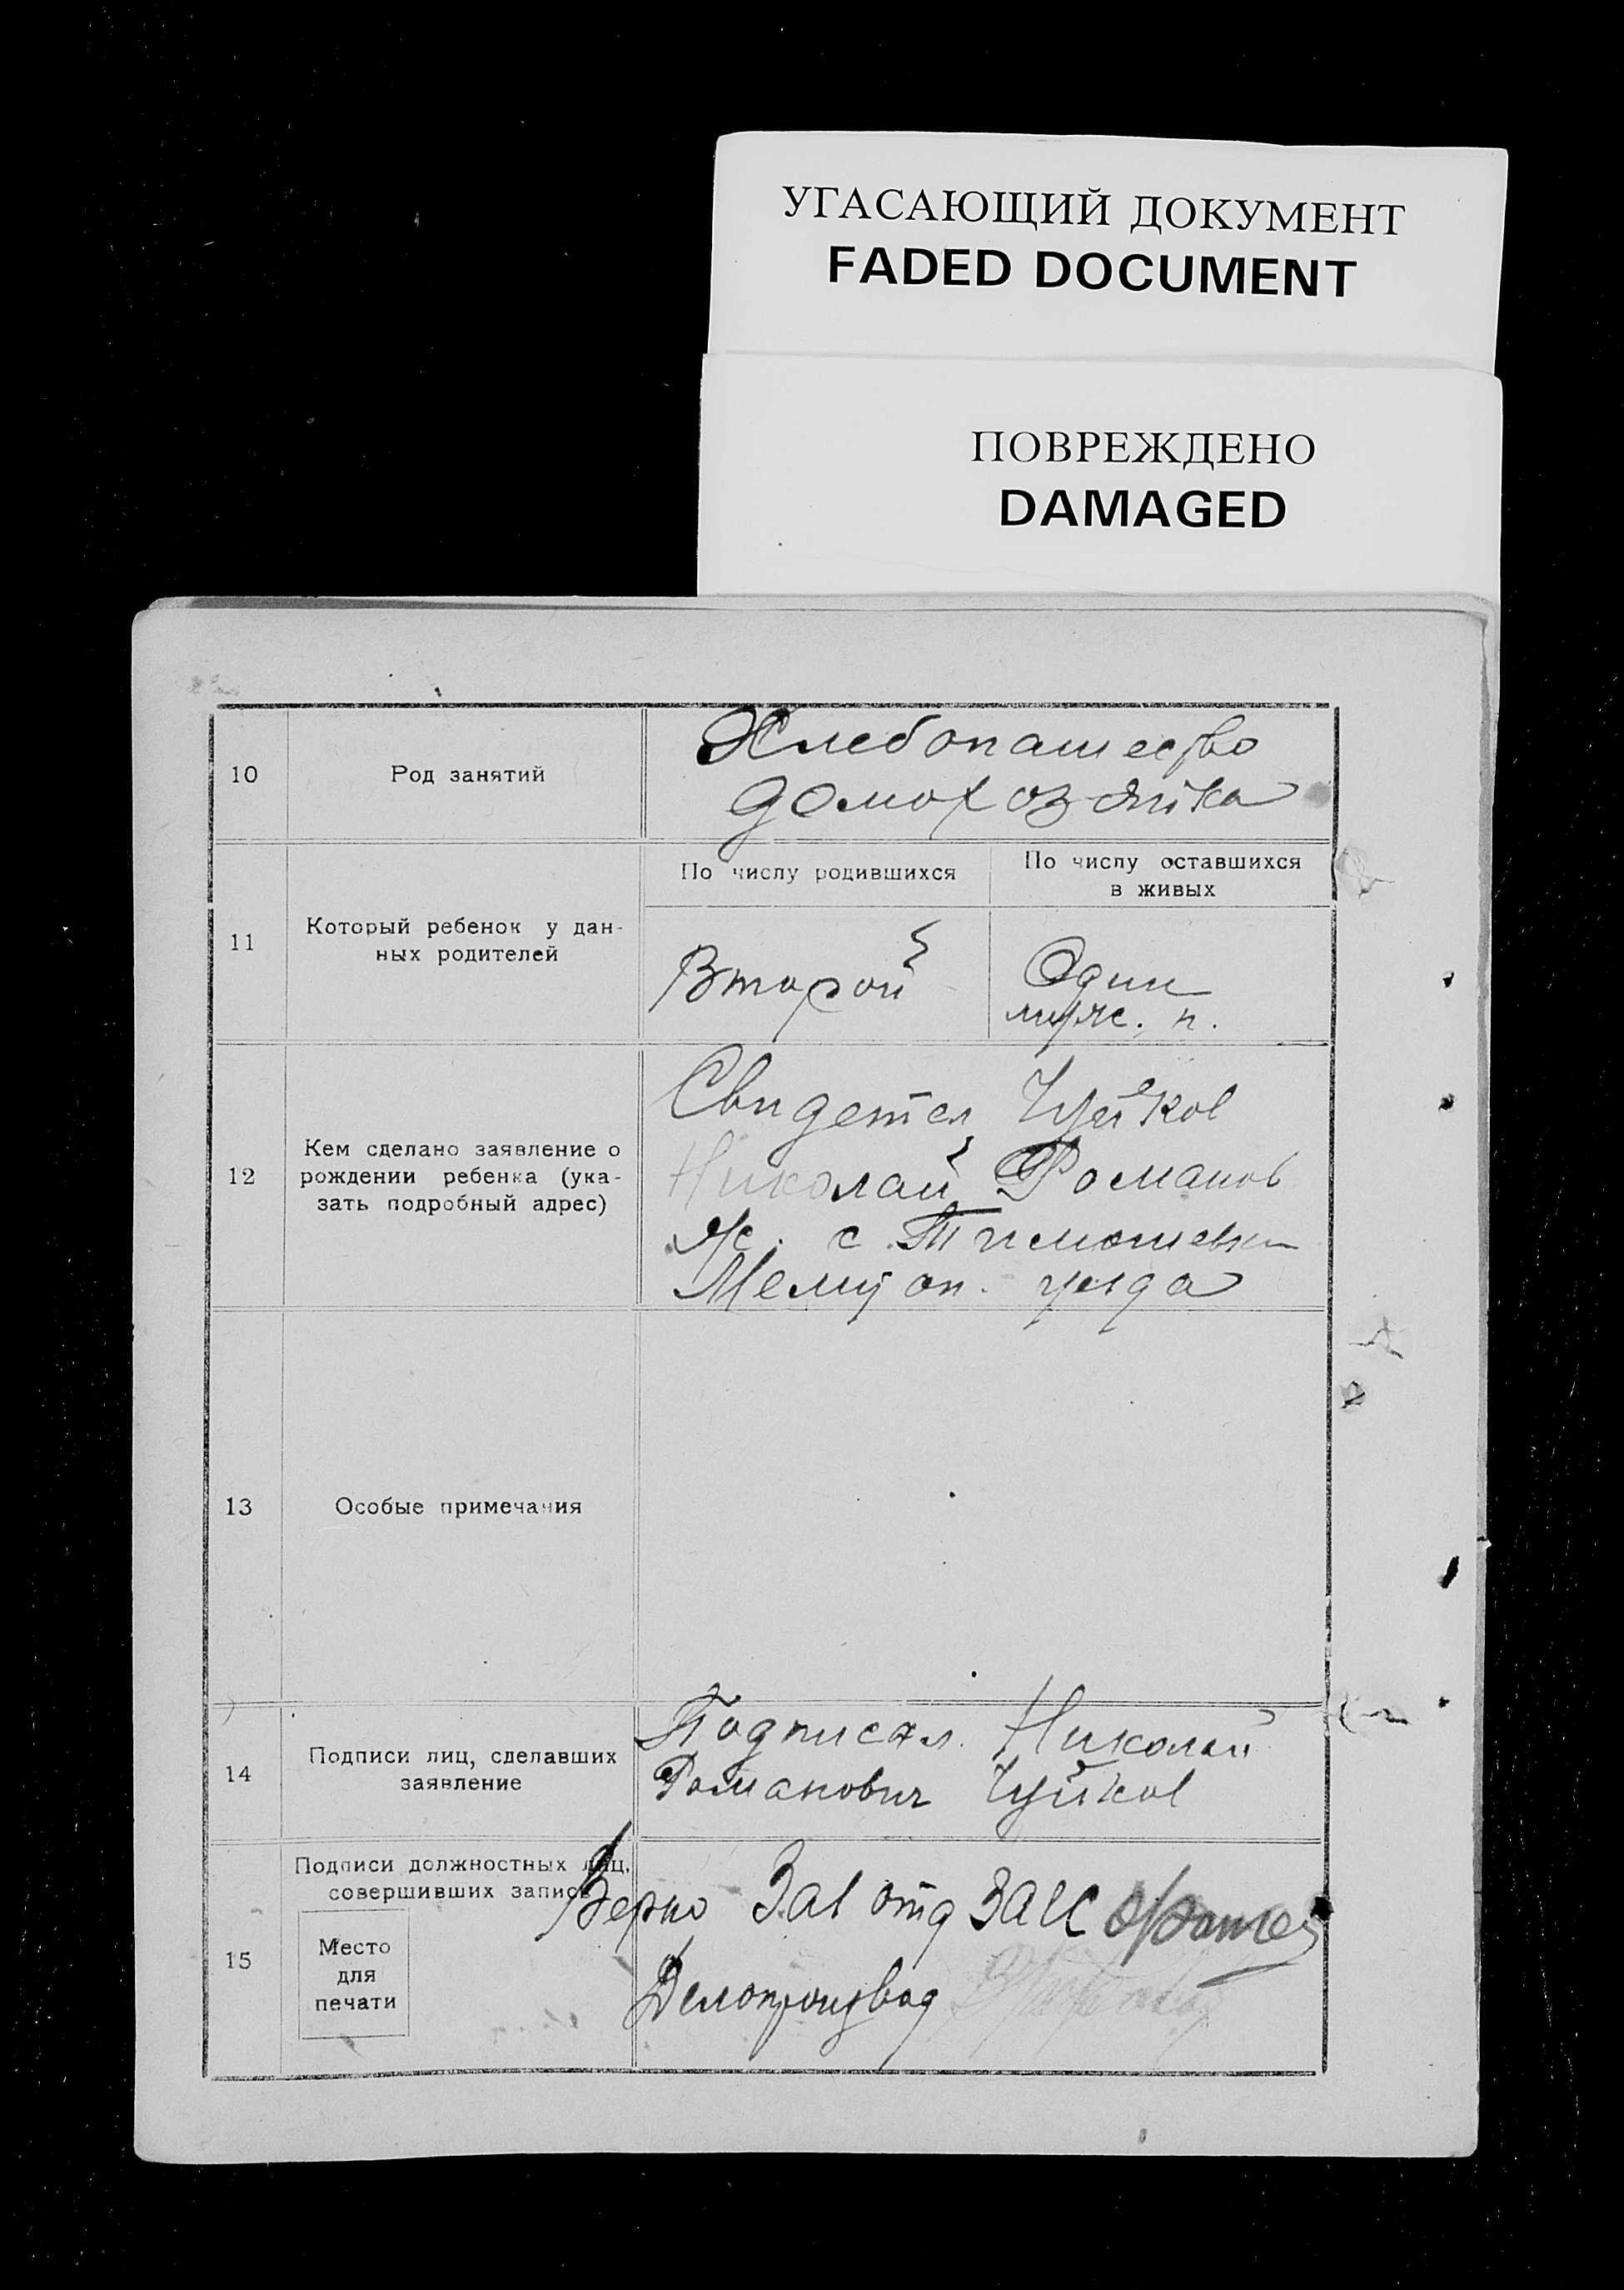 УГАСАЮЩИЙ ДОКУМЕНТ
FADED DOCUMENT
ПОВРЕЖДЕНО
DAMAGED
10
Род занятий
Хлебопашество
домохозяйка
11
Который ребенок у дан-
ных родителей
По числу родившихся
По числу оставшихся
в живых
Второй
Один
муж. п.
12
Кем сделано заявление о
рождении ребенка (ука-
зать подробный адрес)
Свидетел Чуйков
Николай Романов
ж. с. Тимошевки
Мелитоп. уезда
13
Особые примечания
14
Подписи лиц, сделавших
заявление
Подписал Николай
Романович Чуйков
15
Подписи должностных лиц,
совершивших запись
Место
для
печати
Верно Зав отд ЗАГС
Делопроизвод